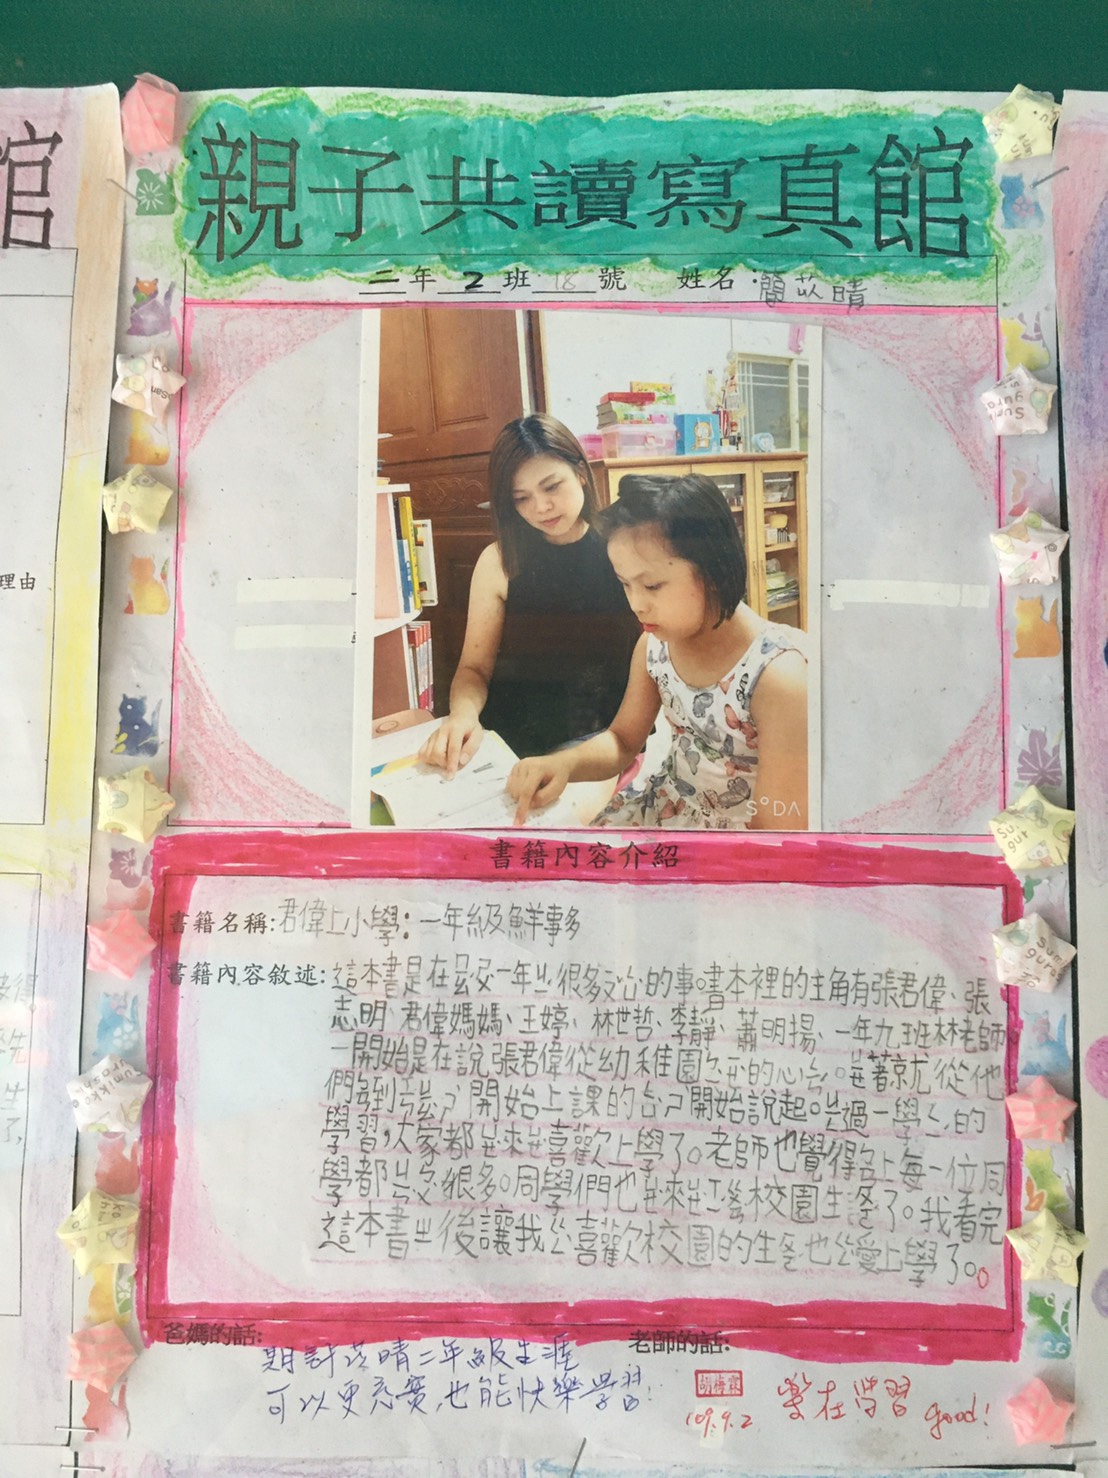 親子共讀寫真館
二年2班18號 姓名:簡苡晴
館
理由
SODA
書籍內容介紹
書籍名稱:君偉上小學:一年級鮮事多
書籍內容敘述:這本書是在 一年 很多 的事。書本裡的主角有張君偉、張
志明、君偉媽媽、王婷、林世哲、李靜、蕭明揚、一年九班林老師
一開始是在說張君偉從幼稚園 的心 。 著就從他
們 開始上課的 開始說起。 過一學 的
學習,大家都 來 喜歡上學了。老師也覺得 上每一位同
學都 很多。同學們也 來 校園生 了。我看完
這本書ㄓ後讓我 喜歡校園的生 也 愛上學了。
爸媽的話:
期許苡晴二年級生涯
可以更充實,也能快樂學習!
老師的話:
109.9.2
樂在學習 good!